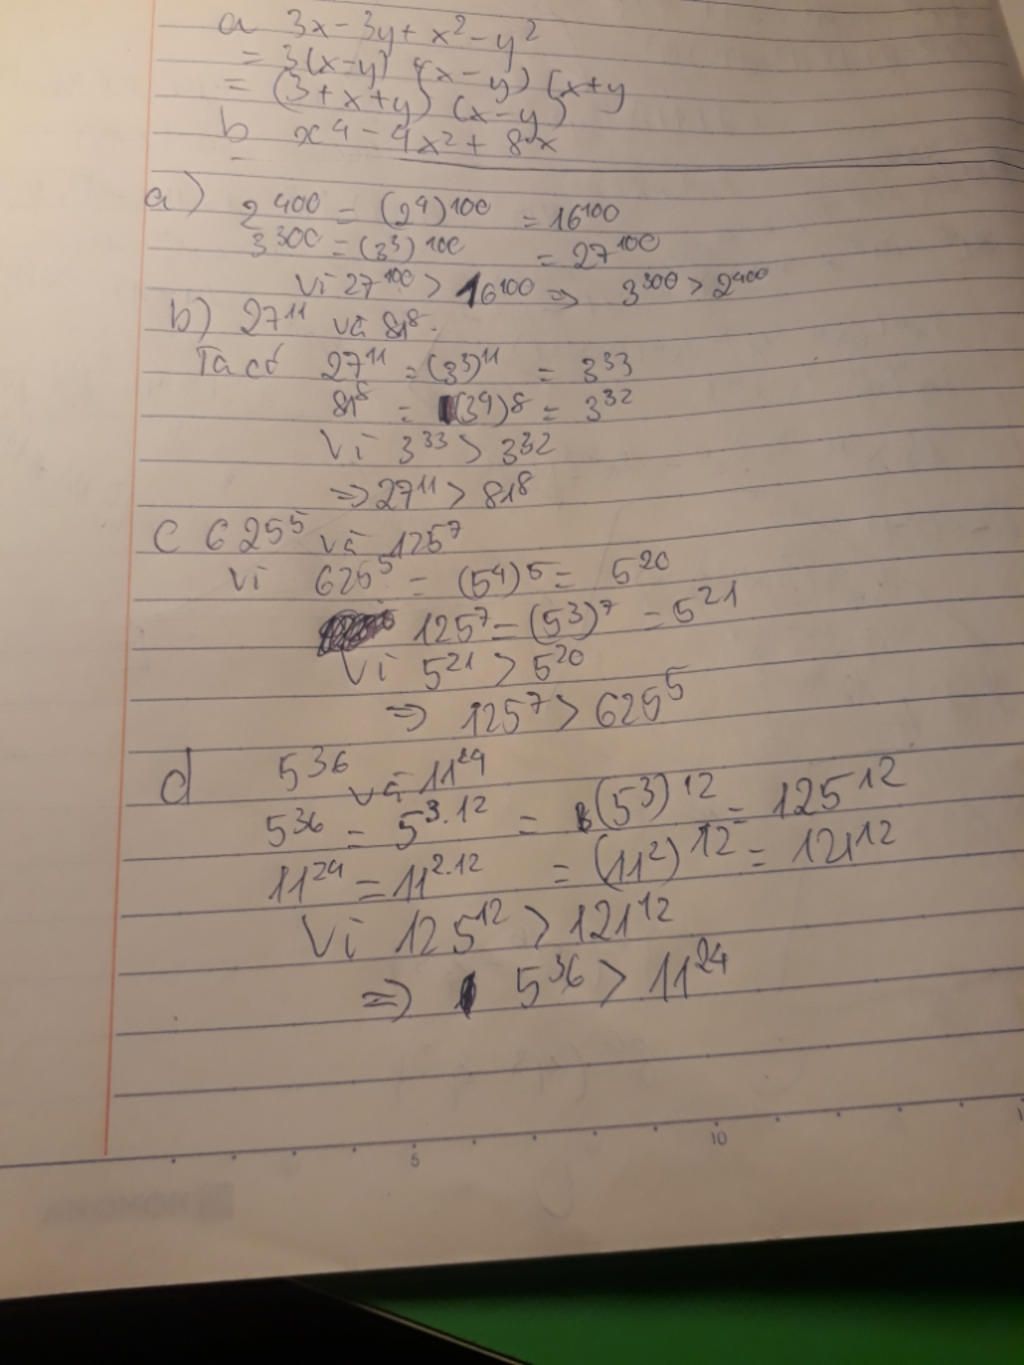 a 3x - 3y + x² - y²
= 3(x-y) + (x - y) (x+y
= (3+x+y) (x-y)
b x⁴ - 4x² + 8x
a) 2⁴⁰⁰ = (2⁴)¹⁰⁰ = 16¹⁰⁰
3³⁰⁰ = (3³)¹⁰⁰ = 27¹⁰⁰
Vì 27¹⁰⁰ > 16¹⁰⁰ => 3³⁰⁰ > 2⁴⁰⁰
b) 27¹¹ và 81⁸.
Ta có 27¹¹ = (3³)¹¹ = 3³³
81⁸ = (3⁴)⁸ = 3³²
Vì 3³³ > 3³²
=> 27¹¹ > 81⁸
c 625⁵ và 125⁷
Vì 625⁵ = (5⁴)⁵ = 5²⁰
125⁷ = (5³)⁷ = 5²¹
Vì 5²¹ > 5²⁰
=> 125⁷ > 625⁵
d 5³⁶ và 11²⁴
5³⁶ = 5³·¹² = (5³)¹² = 125¹²
11²⁴ = 11²·¹² = (11²)¹² = 121¹²
Vì 125¹² > 121¹²
=> 5³⁶ > 11²⁴
5 10